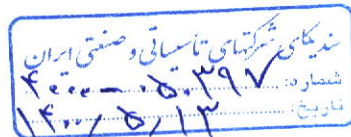 سندیکای شرکتهای تاسیساتی و صنعتی ایران
شماره: ۴۰۰۰-۵۰۳۹۷
تاریخ: ۱۴۰۰/۵/۱۳